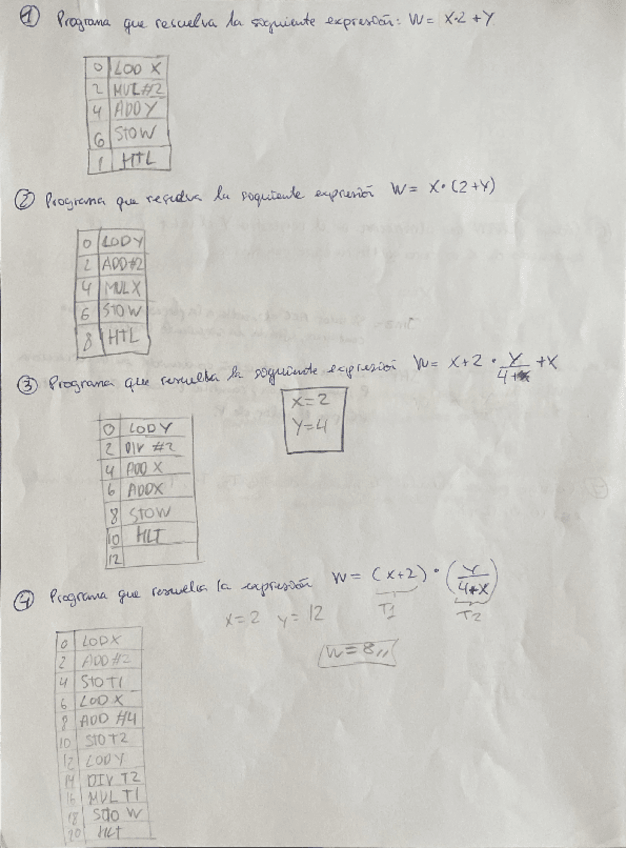 ① Programa que resuelva la siguiente expresión: W = X·2 + Y
0 LOD X
2 MUL #2
4 ADD Y
6 STO W
1 HTL
② Programa que resuelva la siguiente expresión W = X·(2+Y)
0 LOD Y
2 ADD #2
4 MUL X
6 STO W
8 HTL
③ Programa que resuelva la siguiente expresión W = X+2 · Y/4 + X
X=2
Y=4
0 LOD Y
2 DIV #2
4 ADD X
6 ADD X
8 STO W
10 HLT
12
④ Programa que resuelva la expresión W = (X+2) · (Y/4+X)
T1 T2
X=2 Y=12
W=8,,
0 LOD X
2 ADD #2
4 STO T1
6 LOD X
8 ADD #4
10 STO T2
12 LOD Y
14 DIV T2
16 MUL T1
18 STO W
20 HLT